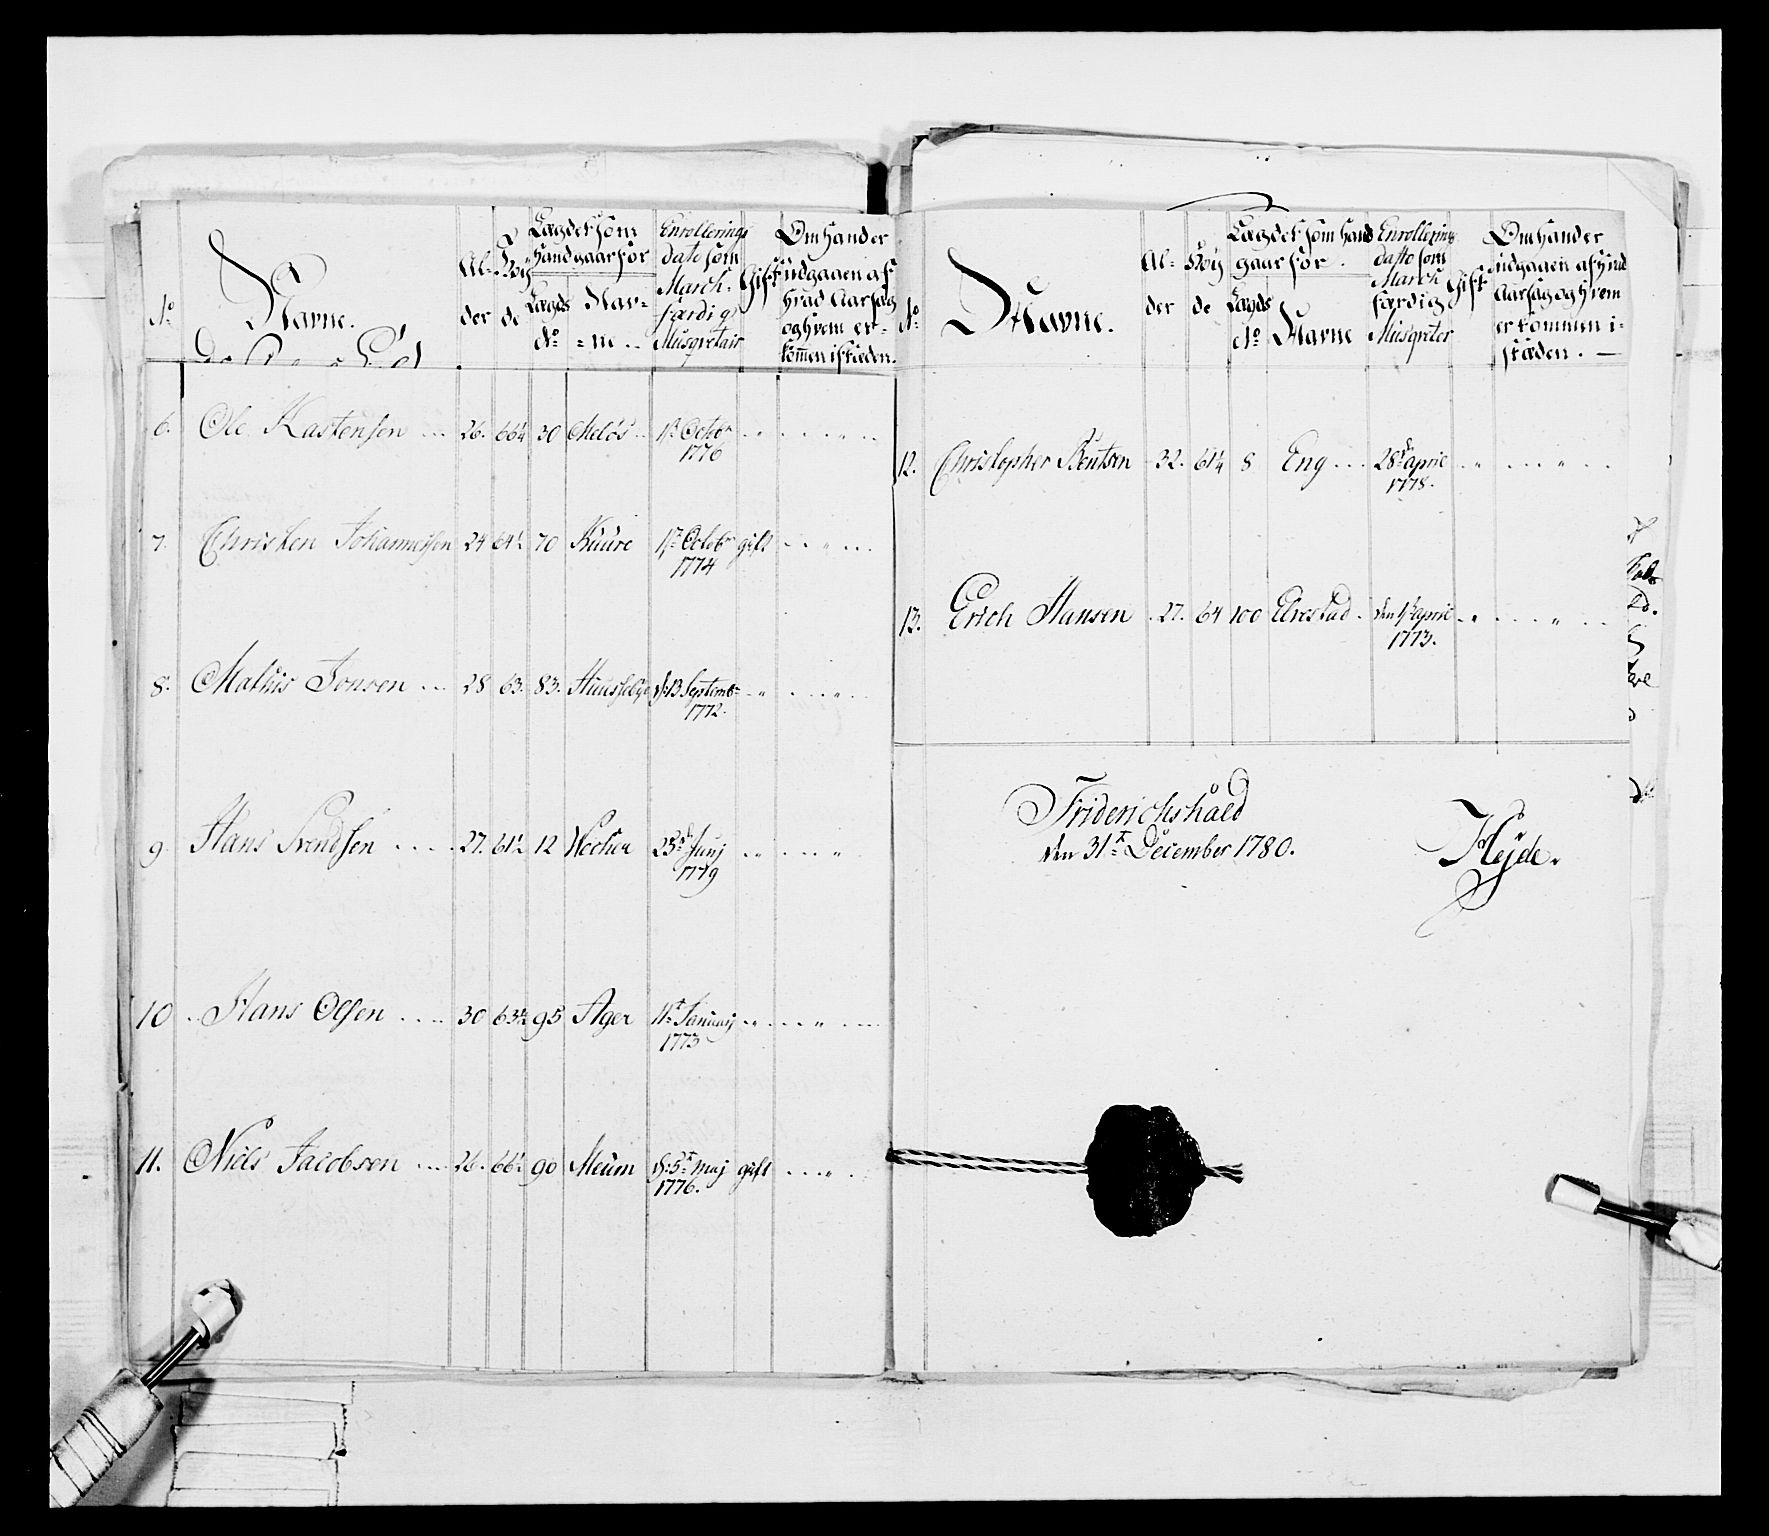 No
Navne.
Al-
der
Høy
de
Lægdet som
Hand gaar for
Lægds
No
Nav-
ne
Enrollerings
dato som
March-
færdig
Musqvetair
Gift
Om Hand er
udgaaen af
hvad Aarsag
og hvem er-
kommen i stæden.
6. Ole Kastensen 26. 66¼ 30 Meløs 1st Octobr
1776
7. Christen Johannessen 24 64½ 70 Kuure 17 Octobr gift
1774
8. Mathis Jonsen 28 63. 83. Huusebye d: 13 Septembr
1772.
9 Hans Svendsen 27. 61½ 12 23d Junj
1779
10 Hans Olsen 30 63¾ 95 Ager 11t Januarj
1773
11. Niels Jacobsen 26. 66½ 90 Meum d: 5t Maj gift
1776.
No
Navne.
Al-
der
Høy
de
Lægdet som Hand
gaar for.
Lægds
No
Navne
Enrollerings
datto som
March
færdig
Musqveter
Gift
Om Hand er
udgaaen af hvad
Aarsag og hvem
er kommen i-
stæden.
12. Christopher Bentsen 32. 61¼ 8 Eng 28d april
1778.
13. Erich Hansen 27. 64 100 Elvestad den 1t april
1773.
Friderichshald
den 31t December 1780.
Hejde.